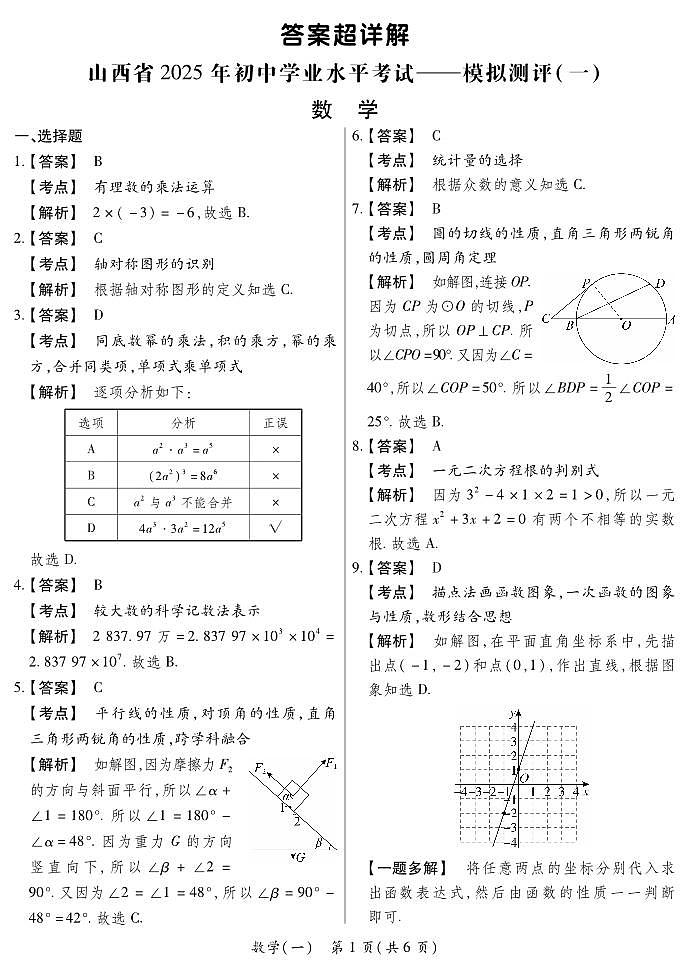 答案超详解
山西省 2025 年初中学业水平考试——模拟测评(一)
数 学
一、选择题
1.【答案】 B
【考点】 有理数的乘法运算
【解析】 2×(-3)=-6,故选 B.
2.【答案】 C
【考点】 轴对称图形的识别
【解析】 根据轴对称图形的定义知选 C.
3.【答案】 D
【考点】 同底数幂的乘法,积的乘方,幂的乘
方,合并同类项,单项式乘单项式
【解析】 逐项分析如下:
选项 分析 正误
A a²·a³=a⁵ ×
B (2a²)³=8a⁶ ×
C a² 与 a³ 不能合并 ×
D 4a³·3a²=12a⁵ √
故选 D.
4.【答案】 B
【考点】 较大数的科学记数法表示
【解析】 2 837.97 万=2.837 97×10³×10⁴=
2.837 97×10⁷. 故选 B.
5.【答案】 C
【考点】 平行线的性质,对顶角的性质,直角
三角形两锐角的性质,跨学科融合
【解析】 如解图,因为摩擦力 F₂
的方向与斜面平行,所以∠α+
∠1=180°. 所以∠1=180°-
∠α=48°. 因为重力 G 的方向
竖直向下,所以∠β+∠2=
90°. 又因为∠2=∠1=48°,所以∠β=90°-
48°=42°. 故选 C.
F₂ F₁
α
1
2
β
G
6.【答案】 C
【考点】 统计量的选择
【解析】 根据众数的意义知选 C.
7.【答案】 B
【考点】 圆的切线的性质,直角三角形两锐角
的性质,圆周角定理
【解析】 如解图,连接 OP.
因为 CP 为⊙O 的切线,P
为切点,所以 OP⊥CP. 所
以∠CPO=90°. 又因为∠C=
40°,所以∠COP=50°. 所以∠BDP=1/2∠COP=
25°. 故选 B.
P D
C B O A
8.【答案】 A
【考点】 一元二次方程根的判别式
【解析】 因为 3²-4×1×2=1>0,所以一元
二次方程 x²+3x+2=0 有两个不相等的实数
根. 故选 A.
9.【答案】 D
【考点】 描点法画函数图象,一次函数的图象
与性质,数形结合思想
【解析】 如解图,在平面直角坐标系中,先描
出点(-1,-2)和点(0,1),作出直线,根据图
象知选 D.
y
4
3
2
1
O
-4 -3 -2 -1 1 2 3 4 x
-1
-2
-3
-4
【一题多解】 将任意两点的坐标分别代入求
出函数表达式,然后由函数的性质一一判断
即可.
数学(一) 第 1 页(共 6 页)